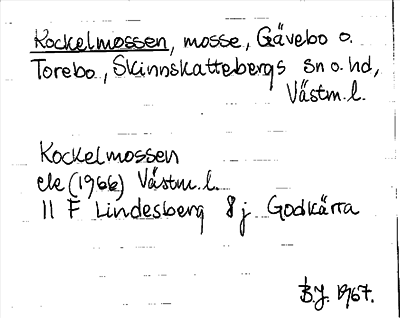 Kockelmossen, mosse, Gävebo o.
Torebo, Skinnskattebergs sn o. hd,
Västm.l.
Kockelmossen
ele (1966) Västm.l.
11 F Lindesberg 8 j Godkärra
B.J. 1967.